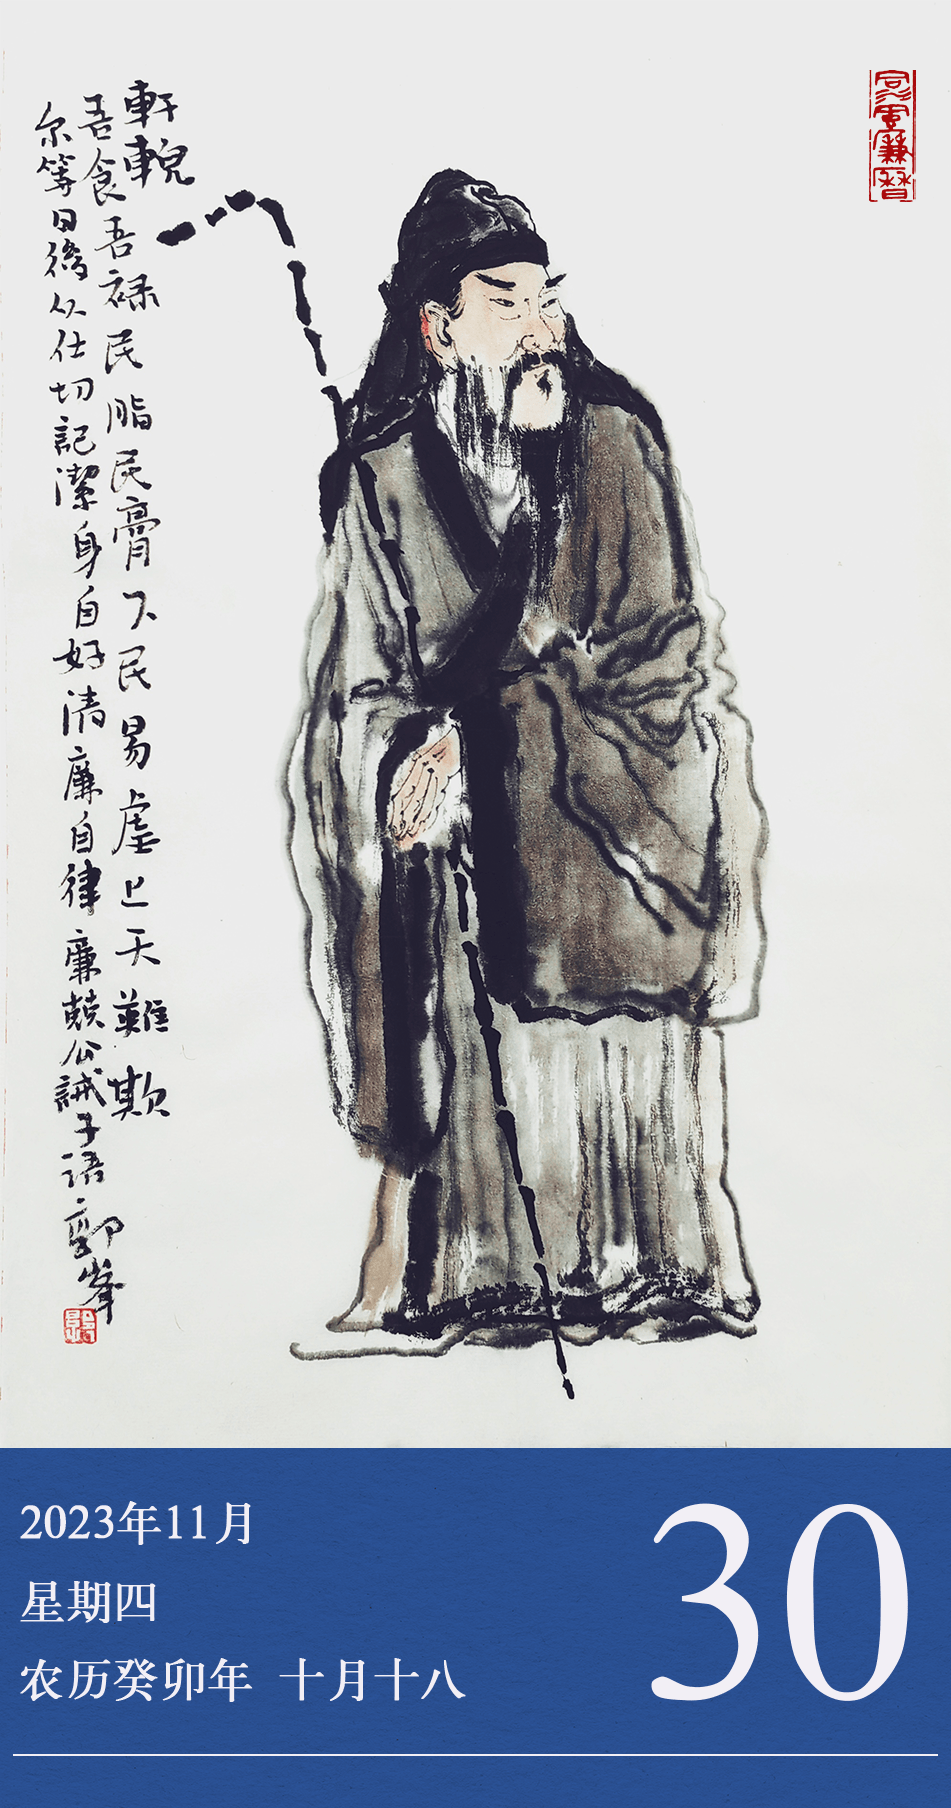 軒輗
吾食吾禄民脂民膏下民易虐上天難欺
尔等日後从仕切記潔身自好清廉自律廉兢公誡子語郭峯
廉曆
2023年11月
星期四
农历癸卯年 十月十八
30